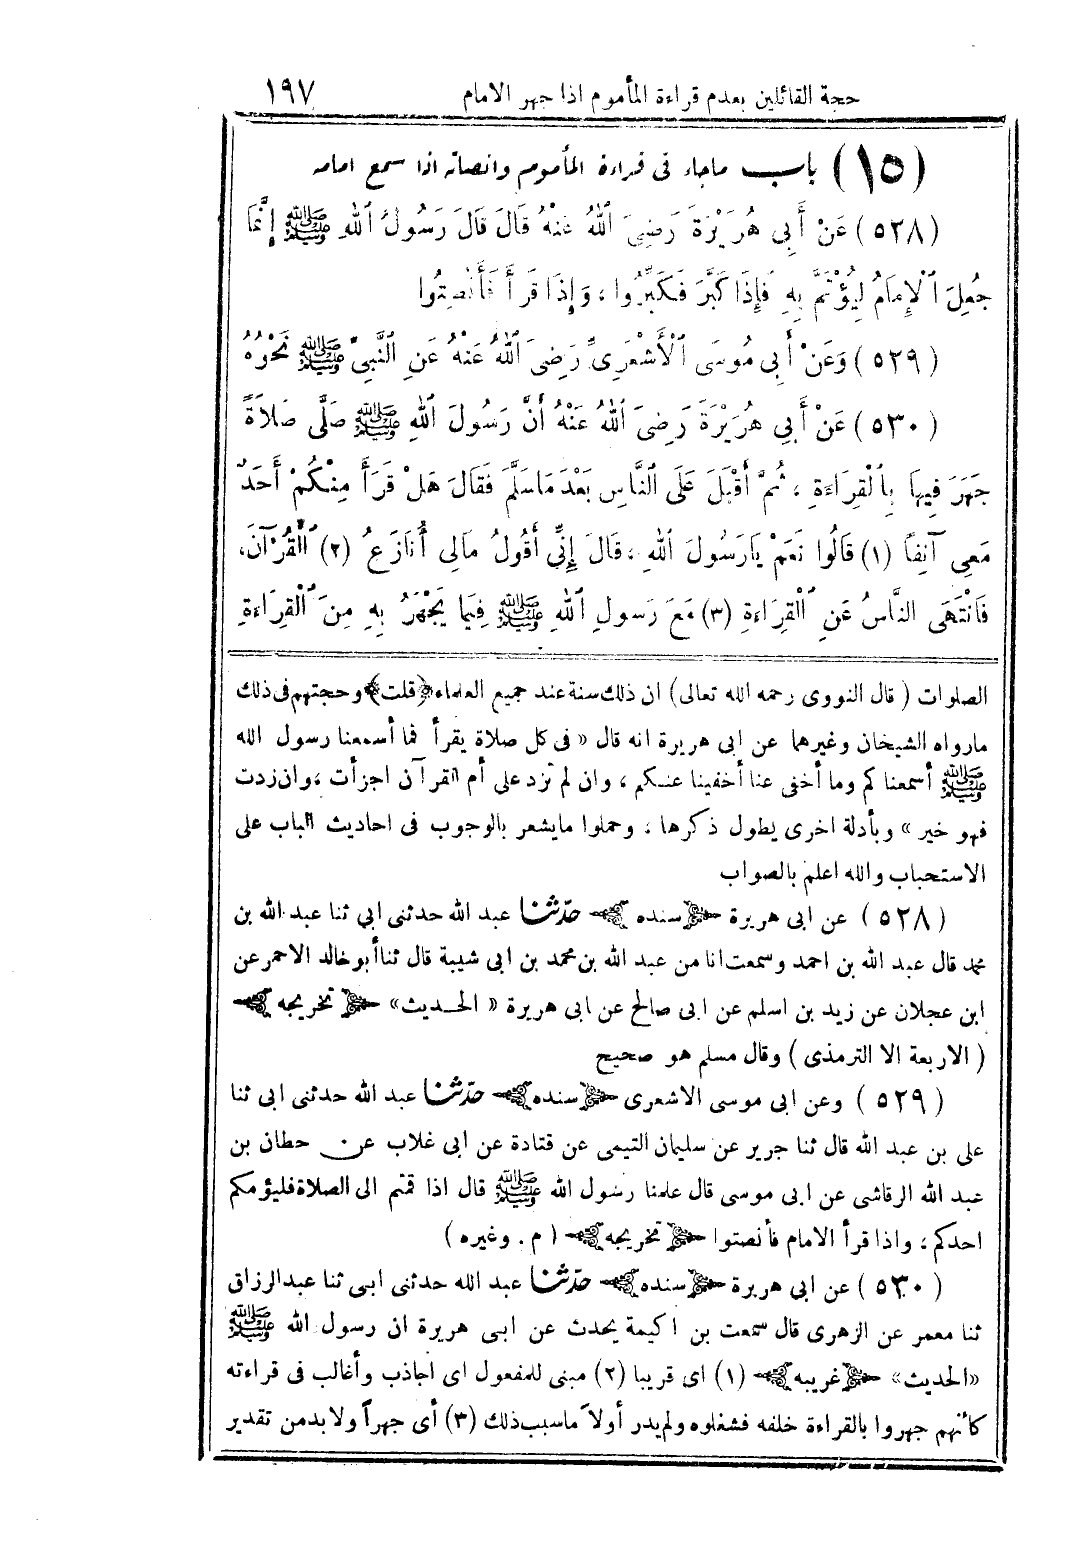 حجة القائلين بعدم قراءة المأموم اذا جهر الامام ١٩٧
(١٥) باب ماجاء فى قراءة المأموم وانصاته اذا سمع امامه
(٥٢٨) عَنْ أَبِي هُرَيْرَةَ رَضِيَ ٱللهُ عَنْهُ قَالَ قَالَ رَسُولُ ٱللهِ ﷺ إِنَّمَا
جُعِلَ ٱلْإِمَامُ لِيُؤْتَمَّ بِهِ فَإِذَا كَبَّرَ فَكَبِّرُوا ، وَإِذَا قَرَأَ فَأَنْصِتُوا
(٥٢٩) وَعَنْ أَبِي مُوسَى ٱلْأَشْعَرِيِّ رَضِيَ ٱللهُ عَنْهُ عَنِ ٱلنَّبِيِّ ﷺ نَحْوُهُ
(٥٣٠) عَنْ أَبِي هُرَيْرَةَ رَضِيَ ٱللهُ عَنْهُ أَنَّ رَسُولَ ٱللهِ ﷺ صَلَّى صَلَاةً
جَهَرَ فِيهَا بِالْقِرَاءَةِ ، ثُمَّ أَقْبَلَ عَلَى ٱلنَّاسِ بَعْدَ مَاسَلَّمَ فَقَالَ هَلْ قَرَأَ مِنْكُمْ أَحَدٌ
مَعِى آنِفًا (١) قَالُوا نَعَمْ يَارَسُولَ ٱللهِ ، قَالَ إِنِّى أَقُولُ مَالِى أُنَازَعُ (٢) ٱلْقُرْآنَ،
فَانْتَهَى النَّاسُ عَنِ ٱلْقِرَاءَةِ (٣) مَعَ رَسُولِ ٱللهِ ﷺ فِيمَا يَجْهَرُ بِهِ مِنَ ٱلْقِرَاءَةِ
الصلوات ( قال النووى رحمه الله تعالى) ان ذلك سنة عند جميع العلماء ﴿قلت﴾ وحجتهم فى ذلك
مارواه الشيخان وغيرهما عن ابى هريرة انه قال « فى كل صلاة يقرأ فما أسمعنا رسول الله
ﷺ أسمعناكم وما أخفى عنا أخفينا عنكم ، وان لم تزد على أم القرآن اجزأت ، وان زدت
فهو خير » وبأدلة اخرى يطول ذكرها ، وحملوا مايشعر بالوجوب فى احاديث الباب على
الاستحباب والله اعلم بالصواب
( ٥٢٨ ) عن ابى هريرة ﴿سنده﴾ حدّثنا عبد الله حدثنى ابي ثنا عبد الله بن
محمد قال عبد الله بن احمد وسمعت انا من عبد الله بن محمد بن ابى شيبة قال ثنا أبو خالد الاحمر عن
ابن عجلان عن زيد بن اسلم عن ابى صالح عن ابى هريرة « الحديث» ﴿تخريجه﴾
( الاربعة الا الترمذى ) وقال مسلم هو صحيح
( ٥٢٩ ) وعن ابى موسى الاشعرى ﴿سنده﴾ حدّثنا عبد الله حدثنى ابى ثنا
على بن عبد الله قال ثنا جرير عن سليمان التيمى عن قتادة عن ابى غلاب عن حطان بن
عبد الله الرقاشى عن ابى موسى قال علمنا رسول الله ﷺ قال اذا قمتم الى الصلاة فليؤمكم
احدكم ، واذا قرأ الامام فأنصتوا ﴿تخريجه﴾ ( م . وغيره )
( ٥٣٠ ) عن ابى هريرة ﴿سنده﴾ حدّثنا عبد الله حدثنى ابى ثنا عبدالرزاق
ثنا معمر عن الزهرى قال سمعت بن اكيمة يحدث عن ابى هريرة ان رسول الله ﷺ
«الحديث» ﴿غريبه﴾ (١) اى قريبا (٢) مبنى للمفعول اى اجاذب وأغالب فى قراءته
كأنهم جهروا بالقراءة خلفه فشغلوه ولم يدر أولاً ماسبب ذلك (٣) أى جهراً ولابد من تقدير